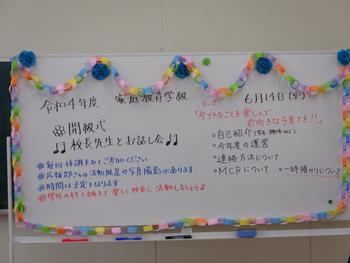 令和4年度 家庭教育学級 6月14日(火)
テーマ
「今できることを楽しんで
前向きな子育てを!!」
開級式
♫校長先生とお話し会♫
・自己紹介
・今年度の運営
・連絡方法について
・MCRについて ・一時預かりについて
※毎回 体調をみてご参加ください
※広報部さんの活動風景の写真撮影があります
※時間は予定となります
※学校の枠を越えて楽しく仲良く活動しましょう♪